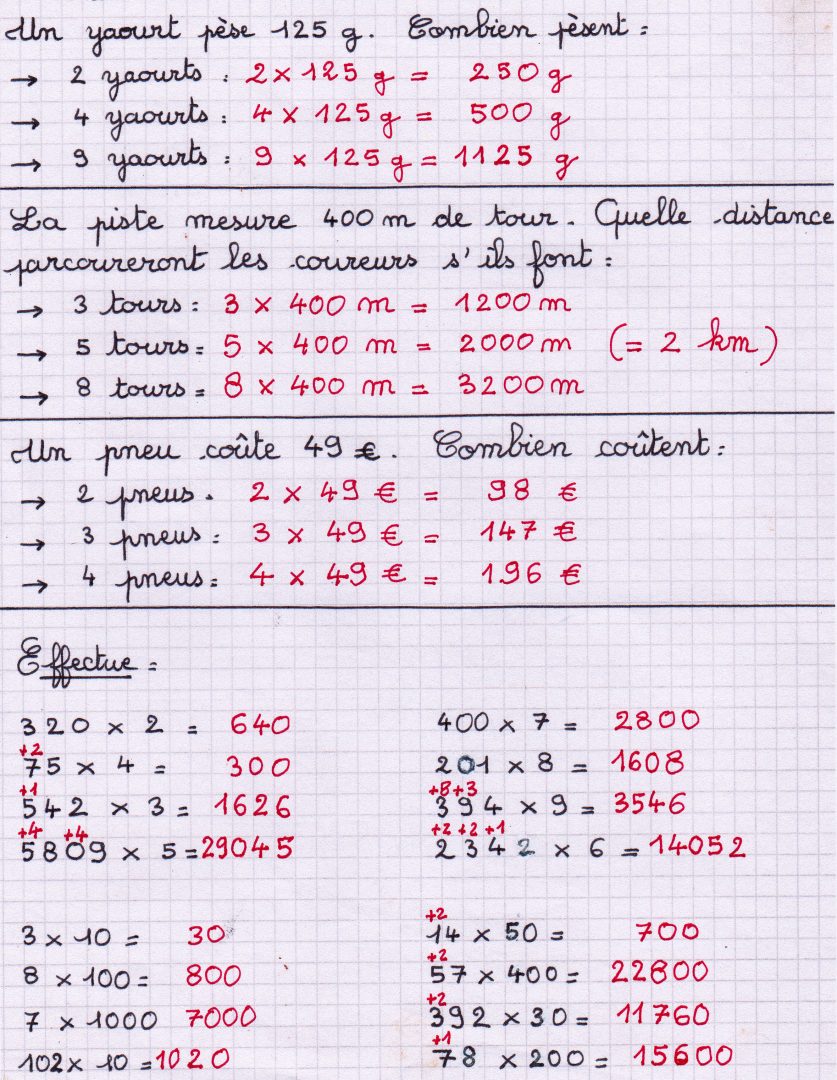 Un yaourt pèse 125 g. Combien pèsent :
→ 2 yaourts : 2 x 125 g = 250 g
→ 4 yaourts : 4 x 125 g = 500 g
→ 9 yaourts : 9 x 125 g = 1125 g
La piste mesure 400 m de tour. Quelle distance
parcoureront les coureurs s'ils font :
→ 3 tours : 3 x 400 m = 1200 m
→ 5 tours : 5 x 400 m = 2000 m (= 2 km)
→ 8 tours : 8 x 400 m = 3200 m
Un pneu coûte 49 €. Combien coûtent :
→ 2 pneus . 2 x 49 € = 98 €
→ 3 pneus : 3 x 49 € = 147 €
→ 4 pneus : 4 x 49 € = 196 €
Effectue :
320 x 2 = 640 400 x 7 = 2800
+2
75 x 4 = 300 201 x 8 = 1608
+1 +8 +3
542 x 3 = 1626 394 x 9 = 3546
+4 +4 +2 +2 +1
5809 x 5 = 29045 2342 x 6 = 14052
+2
3 x 10 = 30 14 x 50 = 700
+2
8 x 100 = 800 57 x 400 = 22800
+2
7 x 1000 7000 392 x 30 = 11760
+1
102 x 10 = 1020 78 x 200 = 15600